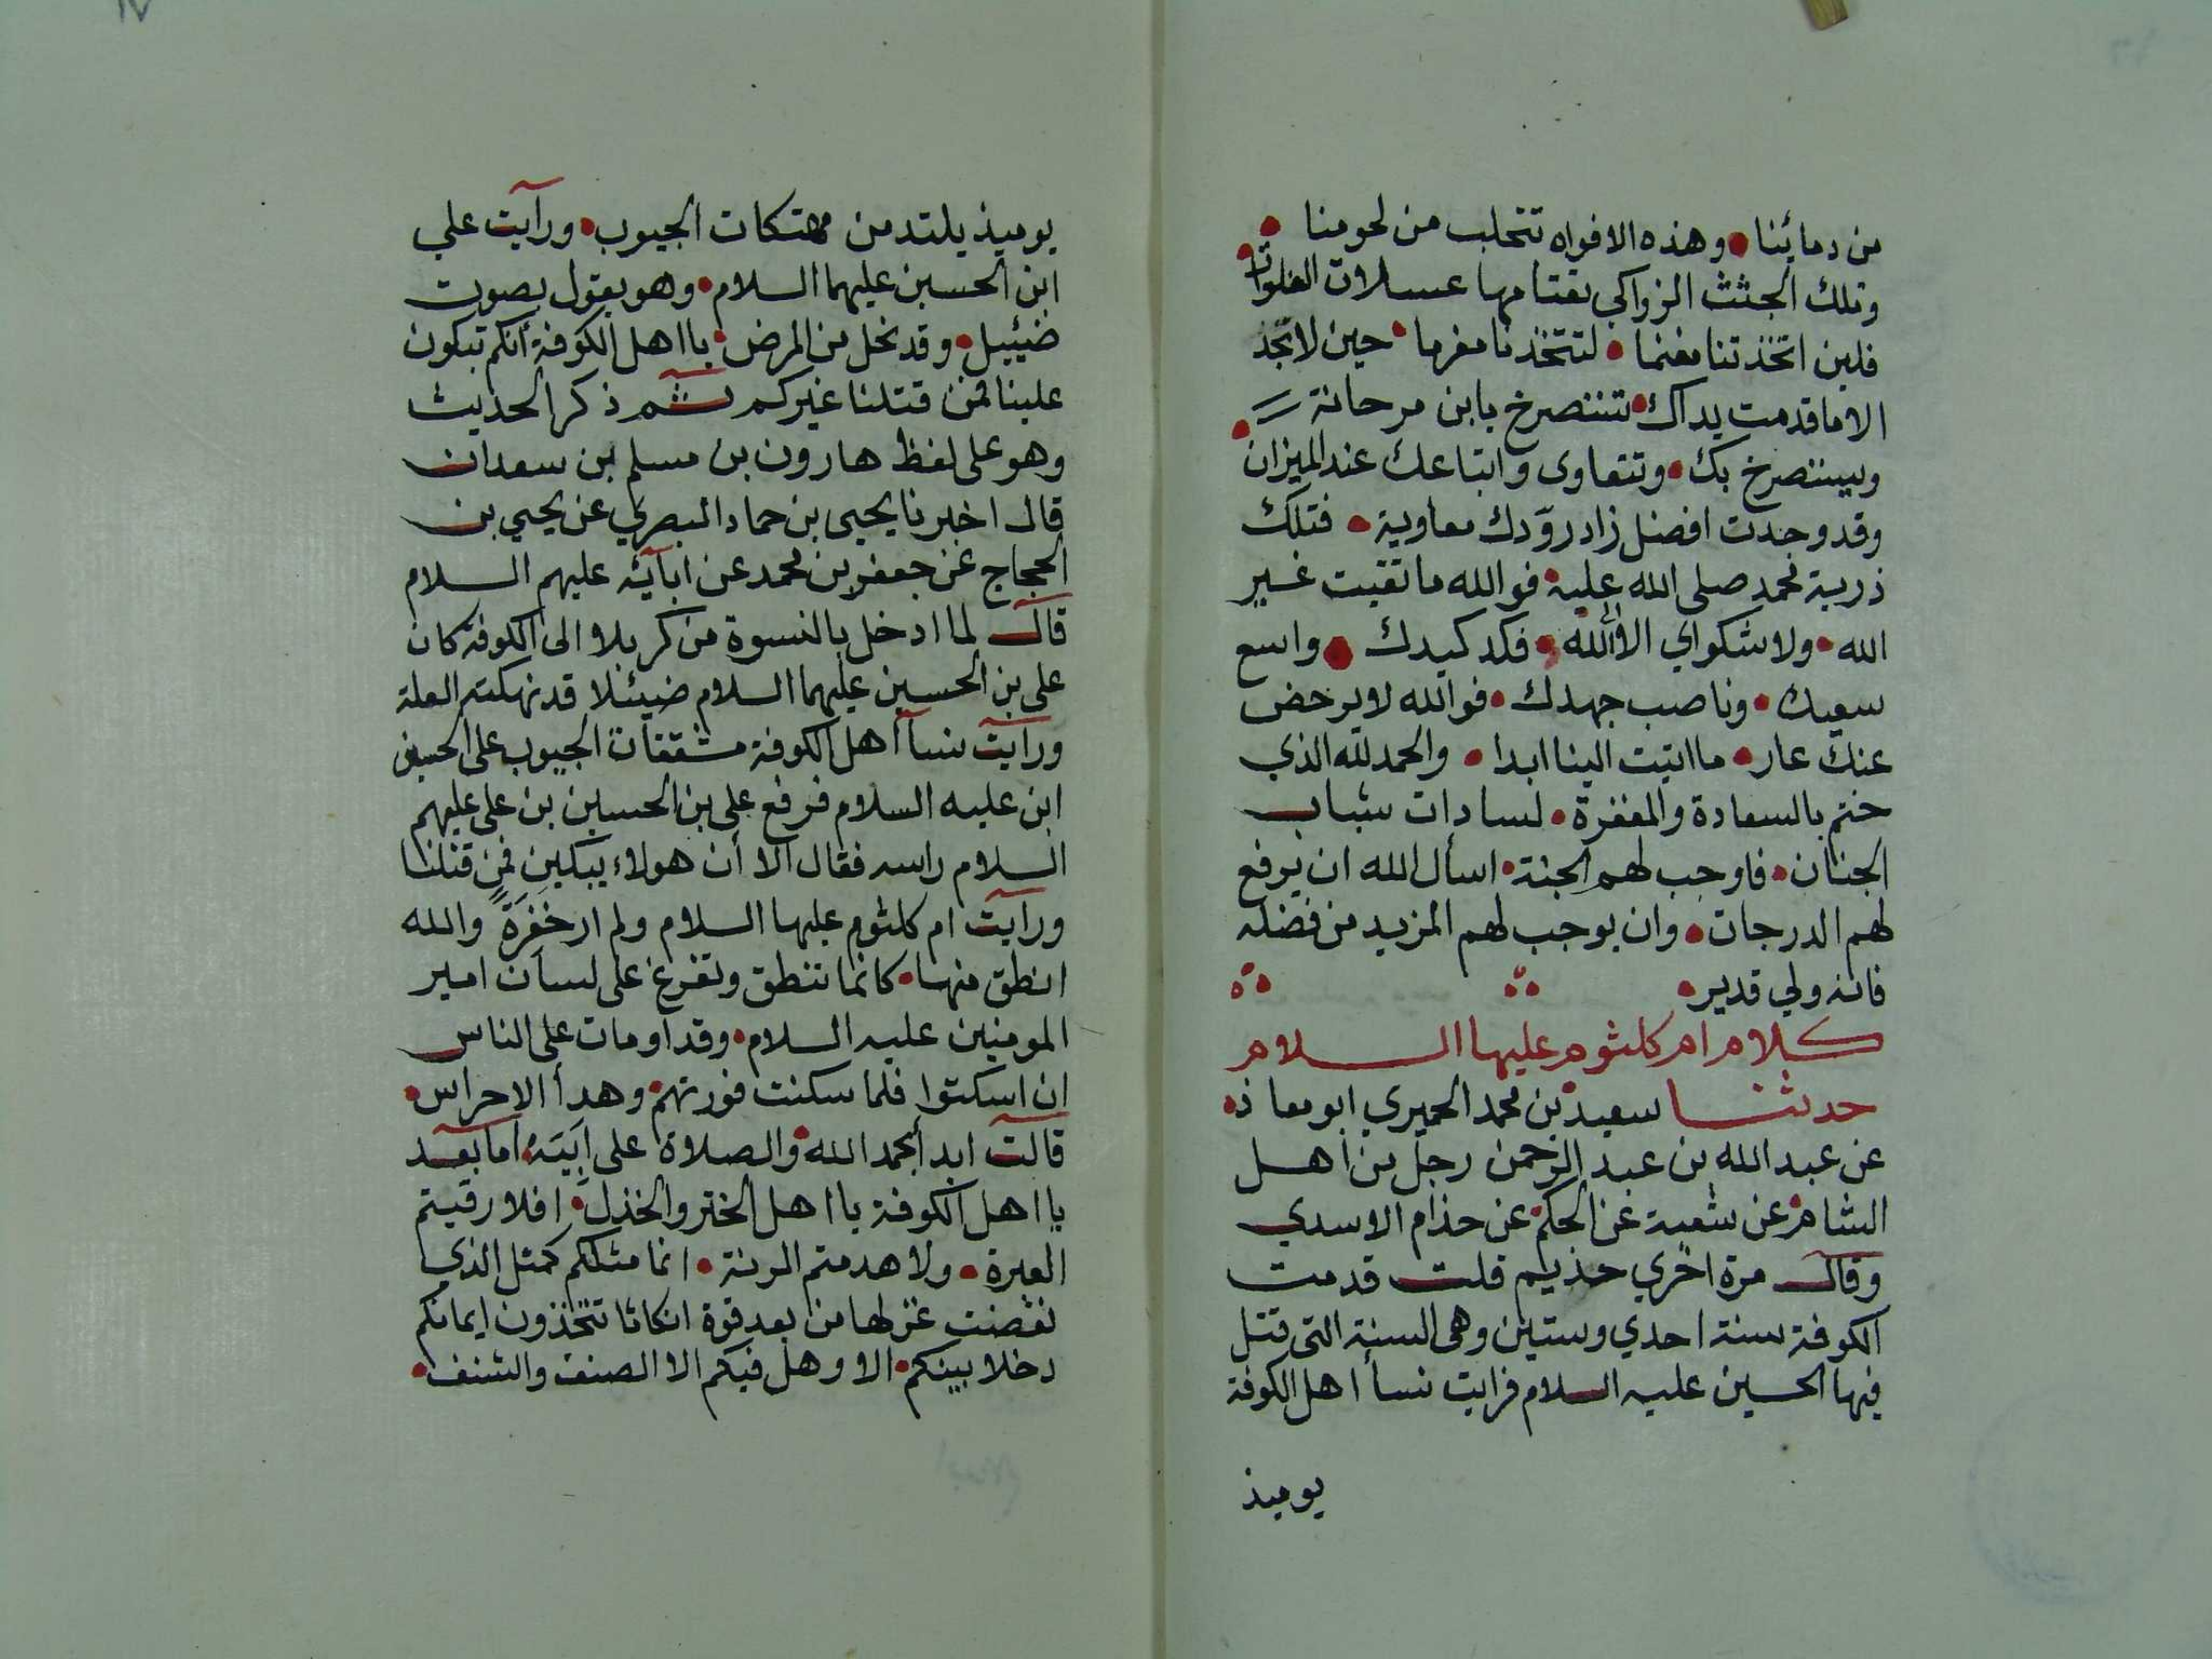 من دمائنا • وهذه الافواه تتحلب من لحومنا •
وتلك الجثث الزواكي يعتامها عسلان الفلوات •
فلين اتخذتنا مغنما • لتتخذنا مغرما • حين لا تجد
الا ما قدمت يداك • تستصرخ يا بن مرجانة
ويستصرخ بك • وتتعاوى واتباعك عند الميزان •
وقد وجدت افضل زاد زوّدك معاوية • فتلك
ذرية محمد صلى الله عليه • فوالله ما تقيت غير
الله • ولا شكواي الا لله • فكد كيدك • واسع
سعيك • وناصب جهدك • فوالله لا يرحض
عنك عار • ما اتيت الينا ابدا • والحمد لله الذي
ختم بالسعادة والمغفرة • لسادات شباب
الجنان • فاوجب لهم الجنة • اسأل الله ان يرفع
لهم الدرجات • وان يوجب لهم المزيد من فضله
فانه ولي قدير •
كلام ام كلثوم عليها السلام
حدثنا سعيد بن محمد الحميري ابو معاذ •
عن عبد الله بن عبد الرحمن رجل من اهل
الشام • عن شعبة عن الحكم • عن حذام الاسدي
وقال مرة اخرى حذيلم قلت قدمت
الكوفة سنة احدي وستين وهى السنة التى قتل
فيها الحسين عليه السلام فرايت نسأ اهل الكوفة
يوميذ
يوميذ يلتدمن مهتكات الجيوب • ورأيت علي
ابن الحسين عليهما السلام • وهو يقول بصوت
ضئييل • وقد نحل من المرض • يا اهل الكوفة أنكم تبكون
علينا فمن قتلنا غيركم ثم ذكر الحديث
وهو على لفظ هارون بن مسلم بن سعدان
قال اخبرنا يحيى بن حماد البصري عن يحيي بن
الحجاج عن جعفر بن محمد عن ابآئه عليهم السلام
قال لما ادخل بالنسوة من كربلا الى الكوفة كان
على بن الحسين عليهما السلام ضيئلا قد نهكته العلة
ورايت نسأ اهل الكوفة مشققات الجيوب على الحسين
ابن عليه السلام فرفع على بن الحسين بن على عليهم
السلام راسه فقال الا أن هولاء يبكين فمن قتلنا
ورايت ام كلثوم عليها السلام ولم ار خَفِرَةً والله
انطق منها • كانما تنطق وتفرغ على لسان امير
المومنين عليه السلام • وقد اومات على الناس
ان اسكتوا فلما سكنت فورتهم • وهدأ الاجراس •
قالت ابدأ بحمد الله • والصلاة على ابيه • اما بعد
يا اهل الكوفة يا اهل الختر والخذل • افلا رقيتم
العبرة • ولا هدمتم الرنة • انما مثلكم كمثل الذي
نقضت غزلها من بعد قوة انكاثا تتخذون ايمانكم
دخلا بينكم • الا وهل فيكم الا الصلف والشنف •
١٧